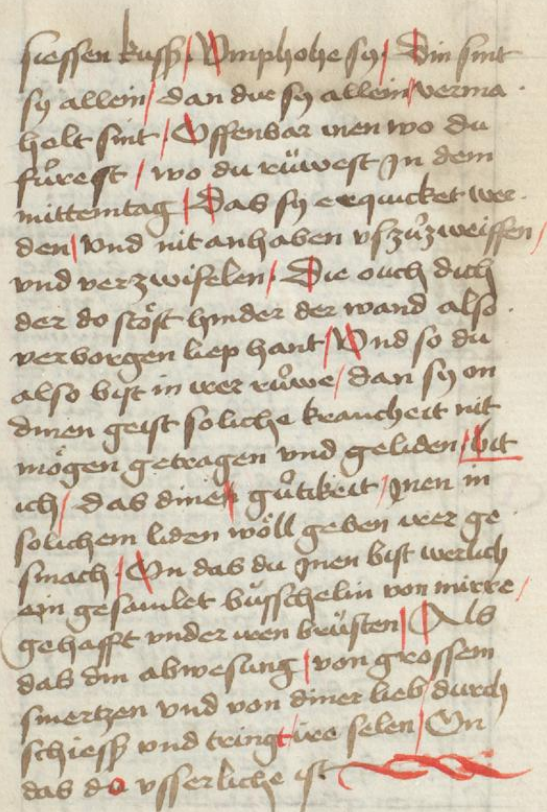 siessen kussz / Vmphohe sy / Din sint
sy allein / dan die sy allein / verma
helt sint / Offenbar inen wo du
fůrest / wo du růwest Jn dem
mittemtag / Das sy erquicket wer
den / vnd nit anhaben vszůzweiffen /
vnd verzwifelen / Die ouch dich
der do stöst hinder der wand also
verborgen liep hant / Vnd so du
also bist in irer růwe / dan sy on
dinen geist soliche kranckeit nit
mögen getragen vnd geliden / bit
ich / das dine gůtikeit / Jnen in
solichem liden wöll geben irer ge
smach / On das du Jnen bist werlich
ein gesamlet bůsschelin von mirre /
gehafft vnder iren brüsten / Als
das din abwesung / von grossem
smertzen vnd von diner lieb / durch
schiessz vnd tringt ire selen / On
das do vsserliche ist